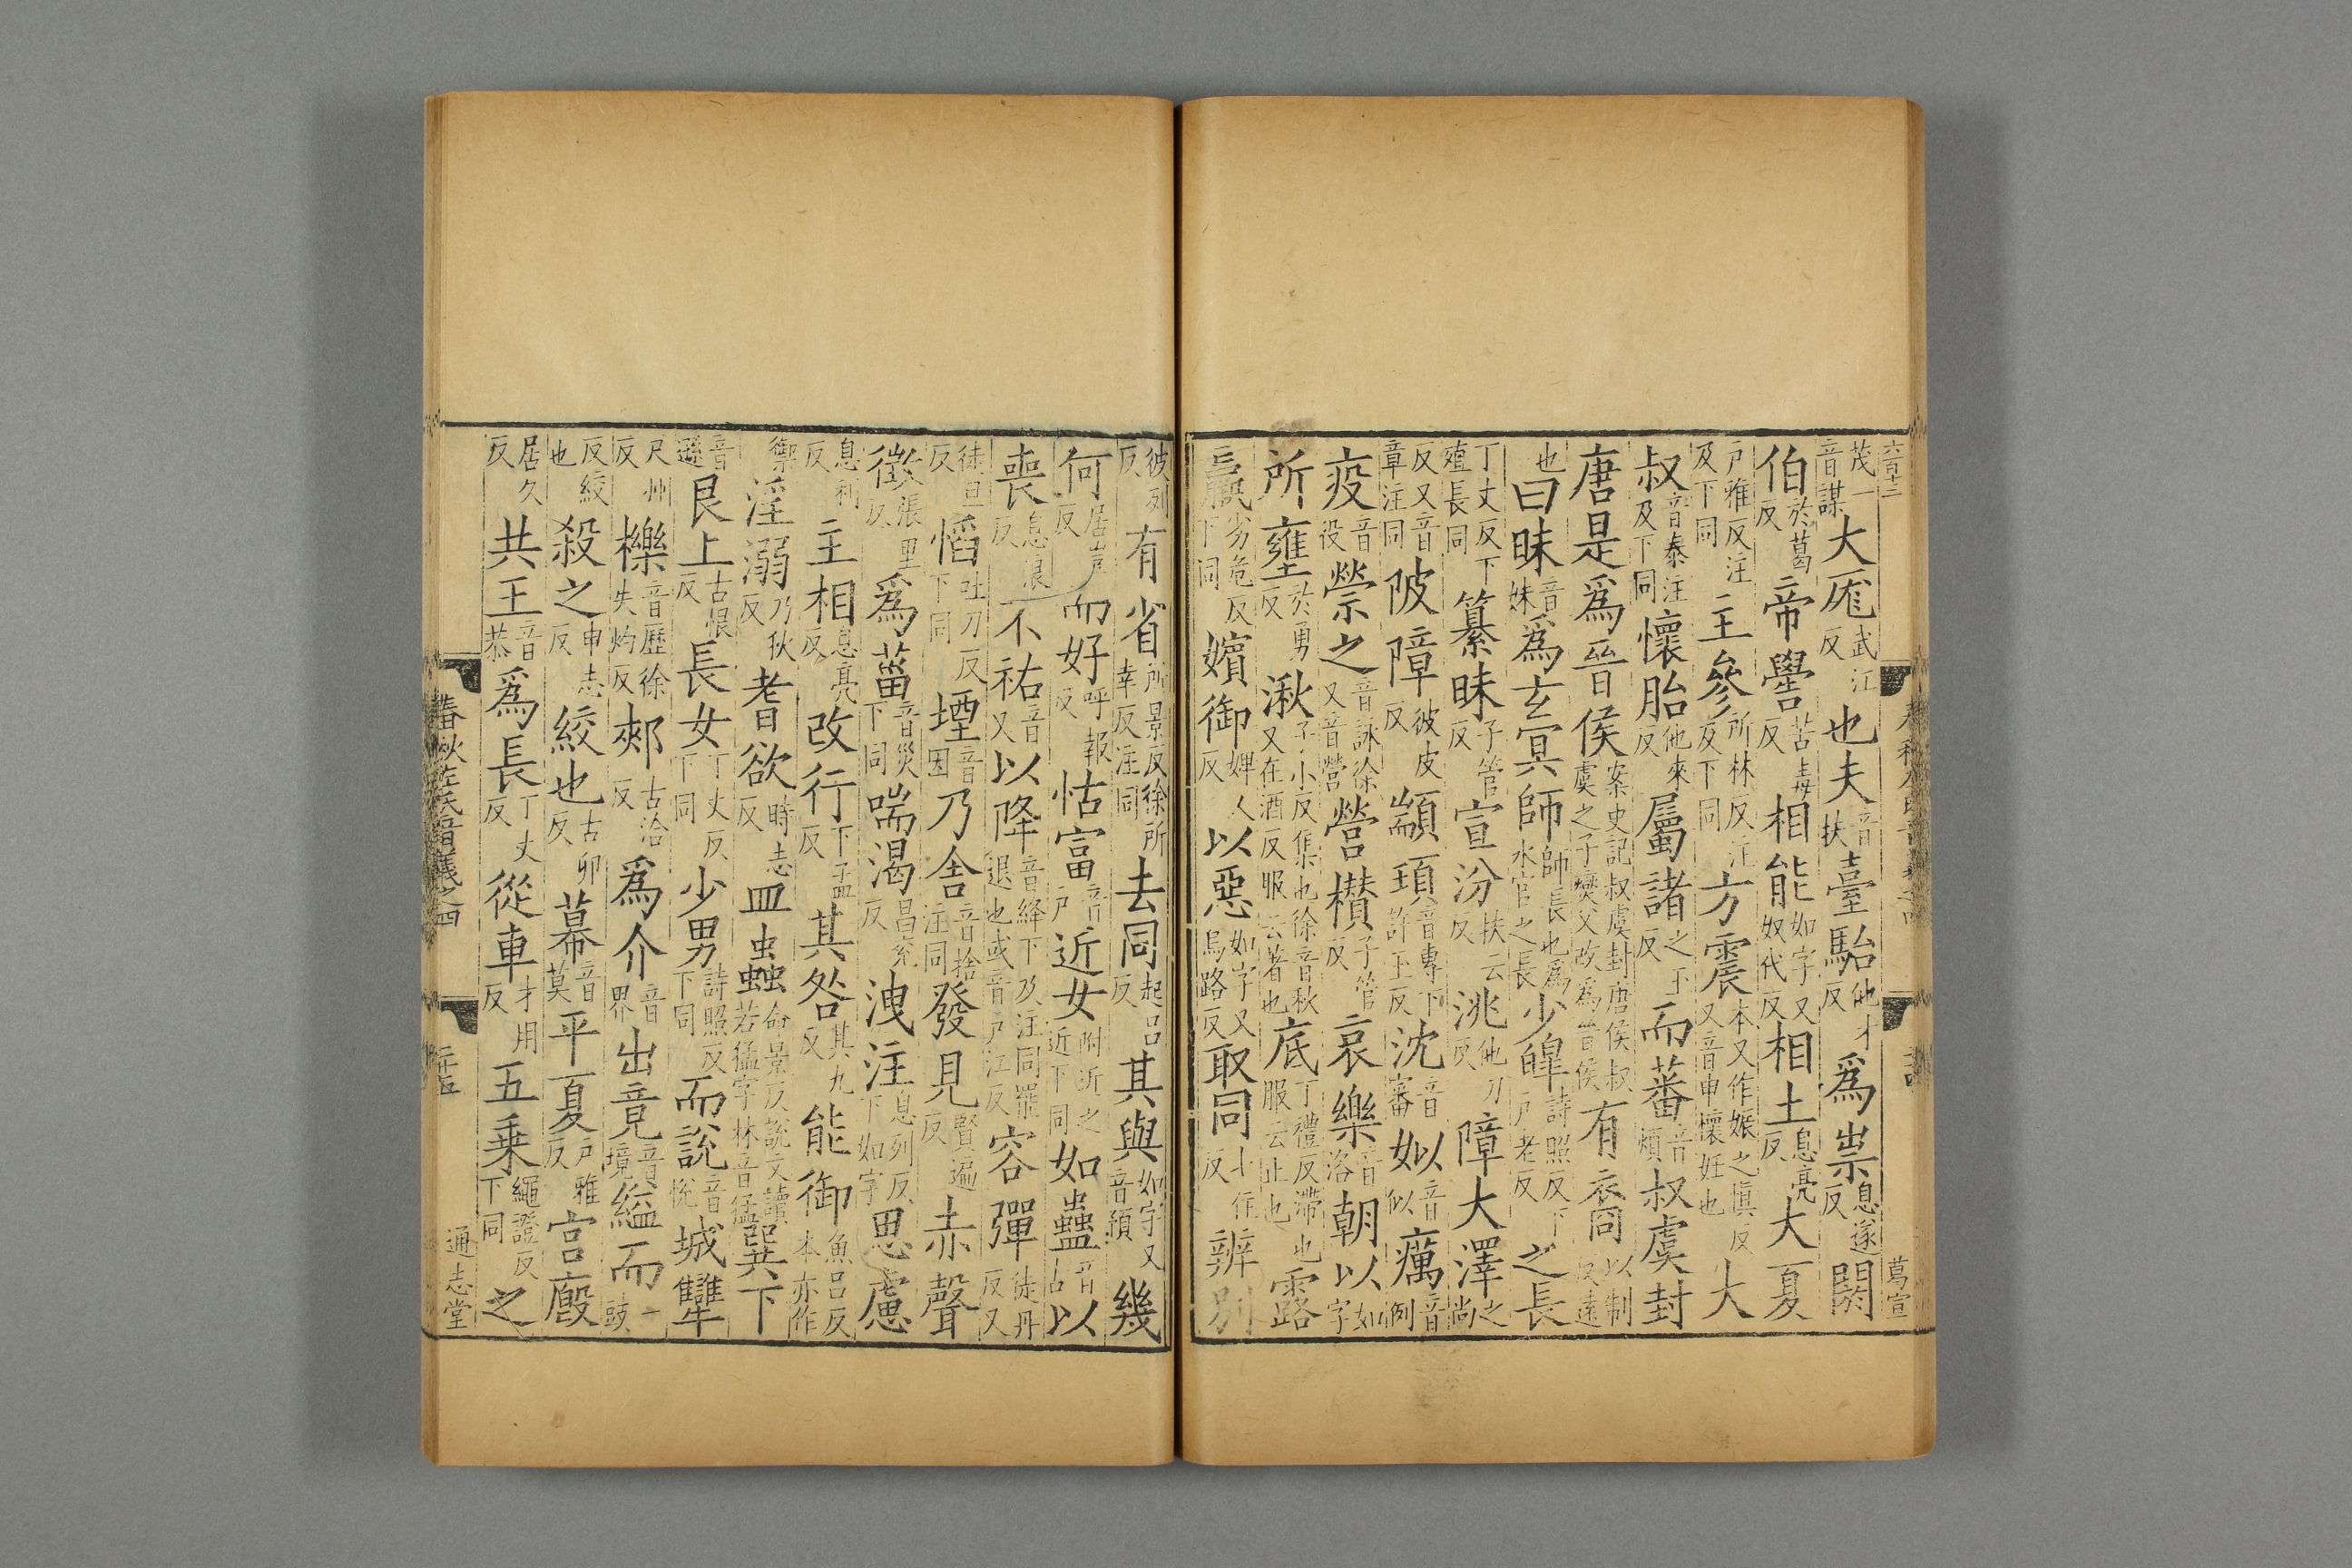 茂一音謀大厖武江反也夫音扶臺駘他才反爲祟息遂反閼
伯於葛反帝嚳苦毒反相能如字又奴代反相土息亮反大夏
戶雅反注及下同主參所林反注及下同方震本又作娠之愼反又音申懷妊也大
叔音泰注及下同懷胎他來反屬諸之玉反而蕃音煩叔虞封
唐是爲晉侯案史記叔虞封唐侯叔虞之子燮父改爲晉侯有裔以制反遠
也曰昧音妹爲玄冥師師長也爲水官之長少皡詩照反下戶老反之長
丁丈反下殖長同纂昧子管反宣汾扶云反洮他刀反障大澤之尚
反又音章注同陂障彼皮反顓頊音專下許玉反沈音審姒音似癘音例
疫音役禜之音詠徐又音營營欑子管反哀樂音洛朝以如字
所壅於勇反湫子小反徐又在酒反服云著也徐音秋集也底丁禮反滯也服云止也露
羸劣危反下同嬪御婢人反以惡如字又烏路反取同七住反辨別
彼列反有省所景反徐所幸反注同去同起呂反其與如字又音預幾
何居豈反而好呼報反怙富音戶近女附近之近下同如蠱音古以
喪息浪反不祐音又以降音絳下及注同罷退也或音戶江反容彈徒丹反又
徒旦反慆吐刀反下同堙音因乃舍音捨注同發見賢遍反赤聲
徵張里反爲菑音災下同喘渴昌兖反洩注息列反下如字思慮
息利反主相息亮反改行下孟反其咎其九反能御魚呂反本亦作
禦淫溺乃狄反耆欲時志反皿蟲命景反說文讀若猛字林音猛巽下
音遜艮上古恨反長女丁丈反下同少男詩照反下同而說音悅城犫
尺州反櫟音歷徐失灼反郟古洽反爲介音界出竟音境縊而一豉
反絞也殺之申志反絞也古卯反幕音莫平夏戶雅反宮廄
居久反共王音恭爲長丁丈反從車才用反五乗繩證反下同之
春秋左氏音義之四
通志堂
六百十三
葛宣